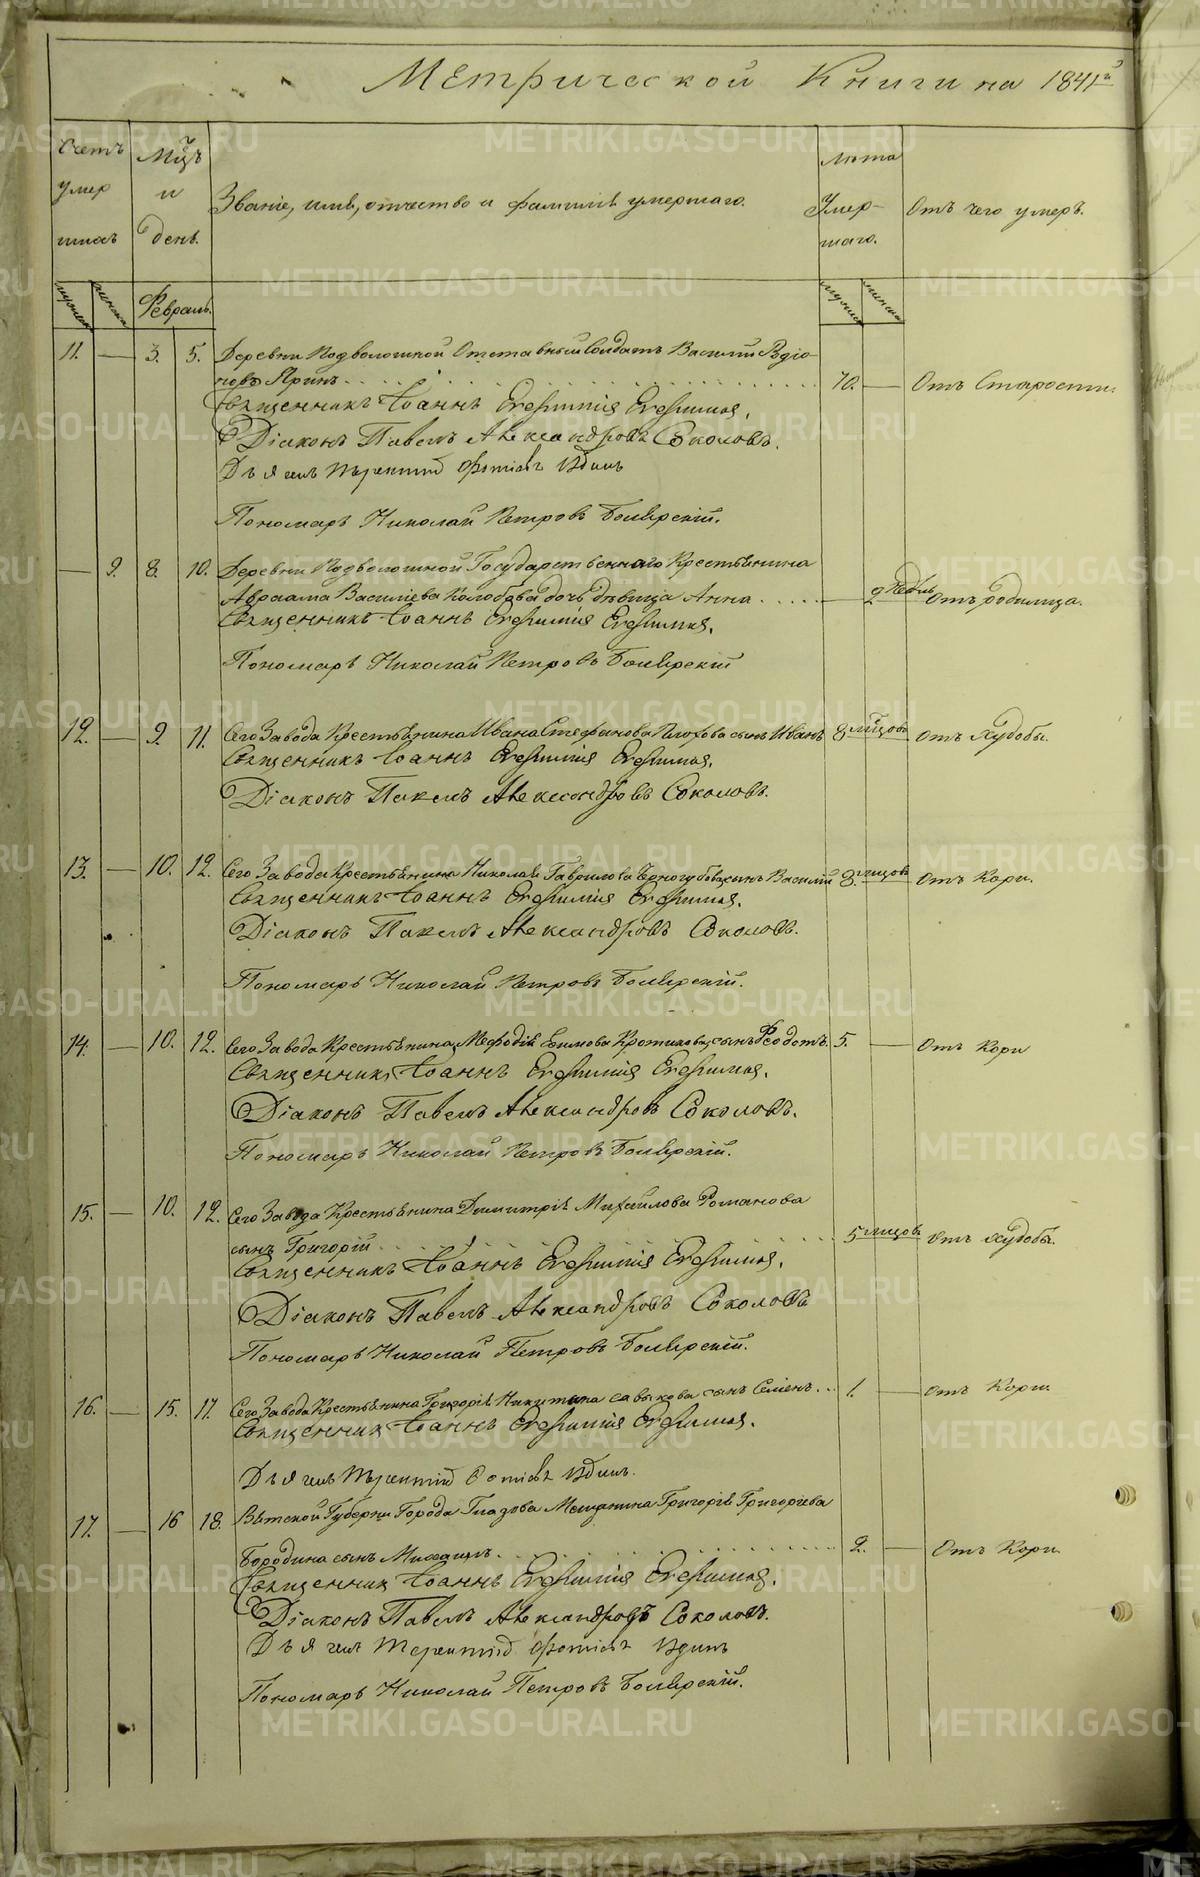 Метрической Книги на 1841й
Счетъ умер шихъ
Мцъ и день.
Званіе, имя, отчество и фамилія умершаго.
Лѣта Умер- шаго.
Отъ чего умеръ.
мужеска женска
Февраль.
мужеска женска
11. — 3. 5. Деревни Подволошной Отставный Солдатъ Василій Родіо-
новъ Яринъ . . . 70. — Отъ Старости.
Священникъ Іоаннъ
Діаконъ Павелъ Александровъ Соколовъ.
Дьячекъ Терентій
Пономарь Николай Петровъ Боярскій.
— 9. 8. 10. Деревни Подволошной Государственнаго Крестьянина
Авраама Васильева Колобова дочь дѣвица Анна . . . . — 2 недѣль Отъ родимца.
Священникъ Іоаннъ
Пономарь Николай Петровъ Боярскій
12. — 9. 11. Сего Завода Крестьянина Ивана Стефанова Плохова сынъ Иванъ 8 мцовъ Отъ Худобы.
Священникъ Іоаннъ
Діаконъ Павелъ Александровъ Соколовъ.
13. — 10. 12. Сего Завода Крестьянина Николая Гаврилова Черногубова сынъ Василій 8. мцовъ Отъ Кори.
Священникъ Іоаннъ
Діаконъ Павелъ Александровъ Соколовъ.
Пономарь Николай Петровъ Боярскій.
14. — 10. 12. Сего Завода Крестьянина Мефодія Екимова сынъ Феодотъ. 5. — Отъ Кори
Священникъ Іоаннъ
Діаконъ Павелъ Александровъ Соколовъ.
Пономарь Николай Петровъ Боярскій.
15. — 10. 12. Сего Завода Крестьянина Димитрія Михайлова Романова
сынъ Григорій . . . 5 мцовъ Отъ худобы.
Священникъ Іоаннъ
Діаконъ Павелъ Александровъ Соколовъ
Пономарь Николай Петровъ Боярскій.
16. — 15. 17. Сего Завода Крестьянина Григорія Никитина Савыкова сынъ Семенъ . . . 1. — Отъ Кори.
Священникъ Іоаннъ
Дьячекъ Терентій
17. — 16 18. Вятской Губерни Города Глазова Мещанина Григорія Григорьева
Бородина сынъ Михаилъ . . . 2. — Отъ Кори.
Священникъ Іоаннъ
Діаконъ Павелъ Александровъ Соколовъ.
Дьячекъ Терентій
Пономарь Николай Петровъ Боярскій.
METRIKI.GASO-URAL.RU